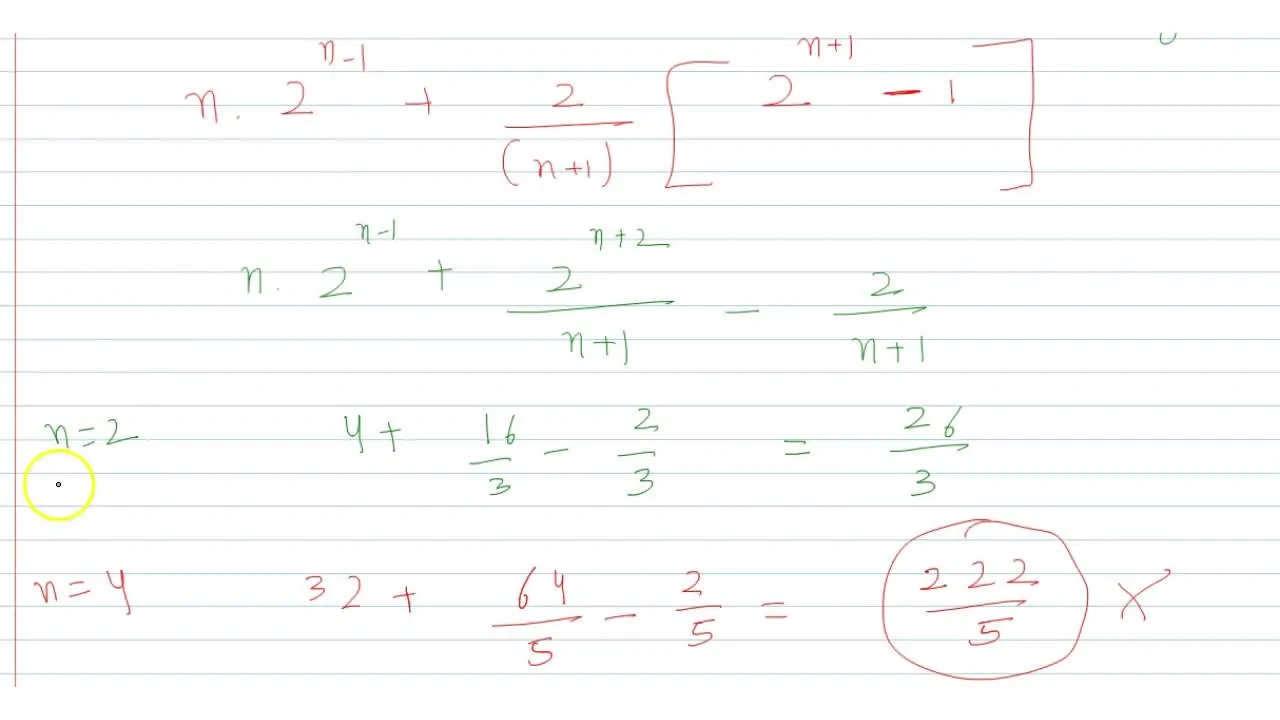 n. 2^{n-1} + 2/(n+1) [ 2^{n+1} - 1 ]
n. 2^{n-1} + 2^{n+2}/n+1 - 2/n+1
n=2 4+ 16/3 - 2/3 = 26/3
n=4 32+ 64/5 - 2/5 = 222/5 X